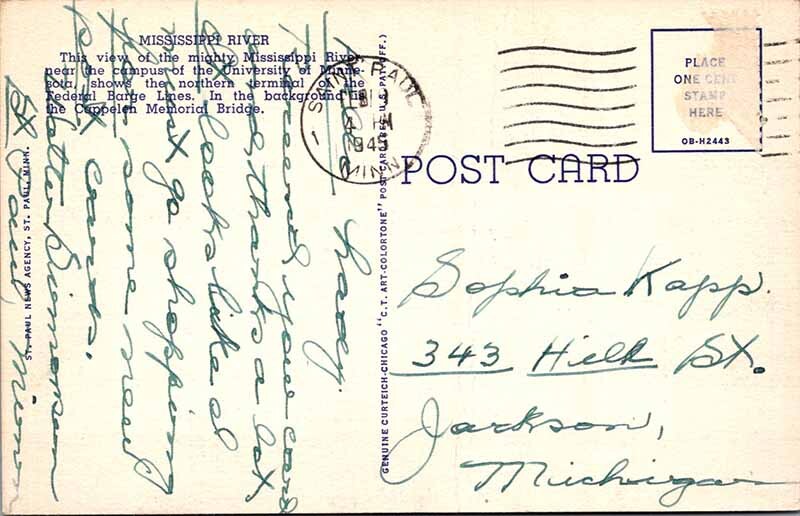 MISSISSIPPI RIVER
This view of the mighty Mississippi River
near the campus of the University of Minne-
sota, shows the northern terminal of the
Federal Barge Lines. In the background is
the Cappelen Memorial Bridge.
ST. PAUL NEWS AGENCY, ST. PAUL, MINN.
GENUINE CURTEICH-CHICAGO "C.T. ART-COLORTONE" POST CARD (REG. U.S. PAT. OFF.)
SAINT PAUL
MINN
PLACE
ONE CENT
STAMP
HERE
OB-H2443
POST CARD
Lady.
received your card
thanks a lot,
looks like I
must go shopping
for some new
P. X cards.
St. Paul, Minn
Sophia Kapp.
343 Hill St.
Jackson,
Michigan